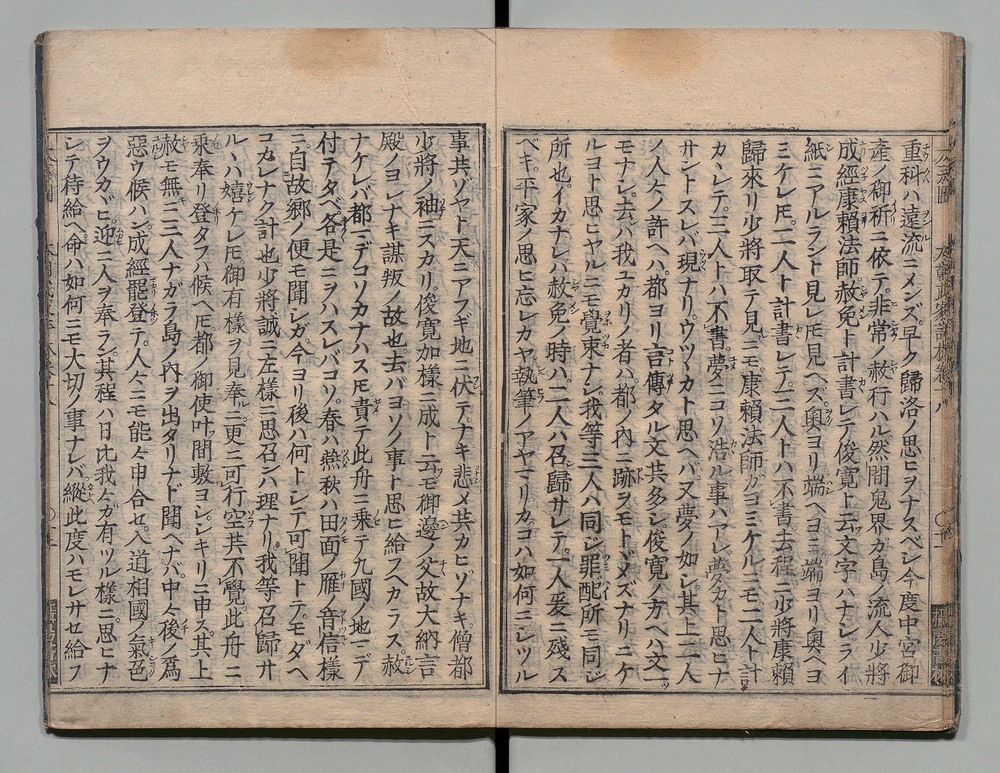 重科ハ遠流ニメンズ。早ク歸洛ノ思ヒヲナスベシ今度中宮御
產ノ御祈ニ依テ。非常ノ赦行ハル然間鬼界ガ島ノ流人少將
成經康賴法師赦免ト計書レテ俊寬ト云フ文字ハナシ。ライ
紙ニアルラント見レ𪜈見ヘス。奧ヨリ端ヘヨミ。端ヨリ奧ヘヨ
ミケレ𪜈。二人ト計書レテ。三人トハ不書。去程ニ少將康賴
歸來リ少將取テ見ニモ。康賴法師ガヨミケルニモ。二人ト計
カヽレテ。三人トハ不書。夢ニコソ浩ル事ハアレ。夢カト思ヒナ
サントスレバ現ナリ。ウツヽカト思ヘバ。又夢ノ如シ其上二人
ノ人々ノ許ヘハ。都ヨリ言傳タル文共多シ俊寬ノ方ヘハ文一ツ
モナシ。去バ我ユカリノ者ハ。都ノ內ニ跡ヲモトヾメズナリニケ
ルヨト思ヒヤルニモ覺束ナシ。我等三人ハ同シ罪配所モ同シ
所也。イカナレバ赦免ノ時ハ。二人ハ召歸サレテ。一人爰ニ殘ス
ベキ。平家ノ思ヒ忘レカヤ。執筆ノアヤマリカ。コハ如何ニシツル
事共ゾヤト天ニアフギ地ニ伏テナキ悲メ共カヒゾナキ。僧都
少將ノ袖ニスカリ。俊寬加樣ニ成ト云モ御邊ノ父故大納言
殿ノヨレナキ謀叛ノ故也去バヨソノ事ト思ヒ給フヘカラス。赦
ナケレバ都マデコソカナハスモ責テ此舟ニ乘テ九國ノ地マデ
付テタベ各是ニヲハスレバコソ。春ハ燕秋ハ田面ノ雁ノ音信樣
ニ自故鄕ノ便モ聞シガ。今ヨリ後ハ何トシテ可聞トテ。モダヘ
コカレナク計也少將誠ニ左樣ニ思召ンハ理ナリ。我等召歸サ
ルヽハ嬉ケレ𪜈御有樣ヲ見奉ルニ更ニ可行空共不覺。此舟ニ
乘奉リ登タフハ候ヘ𪜈。都ノ御使叶間敷ヨシシキリニ申ス。其上
赦モ無ニ三人ナガラ島ノ內ヲ出タリナド聞ヘナバ。中々後ノ爲
惡ウ候ハン。成經罷登テ。人々ニモ能々申合セ。入道相國ノ氣色
ヲウカヾヒ。迎ニ人ヲ奉ラン。其程ハ日比我々ガ有ツル樣ニ思ヒナ
シテ待給ヘ命ハ如何ニモ大切ノ事ナレバ縱此度ハモレサセ給フ